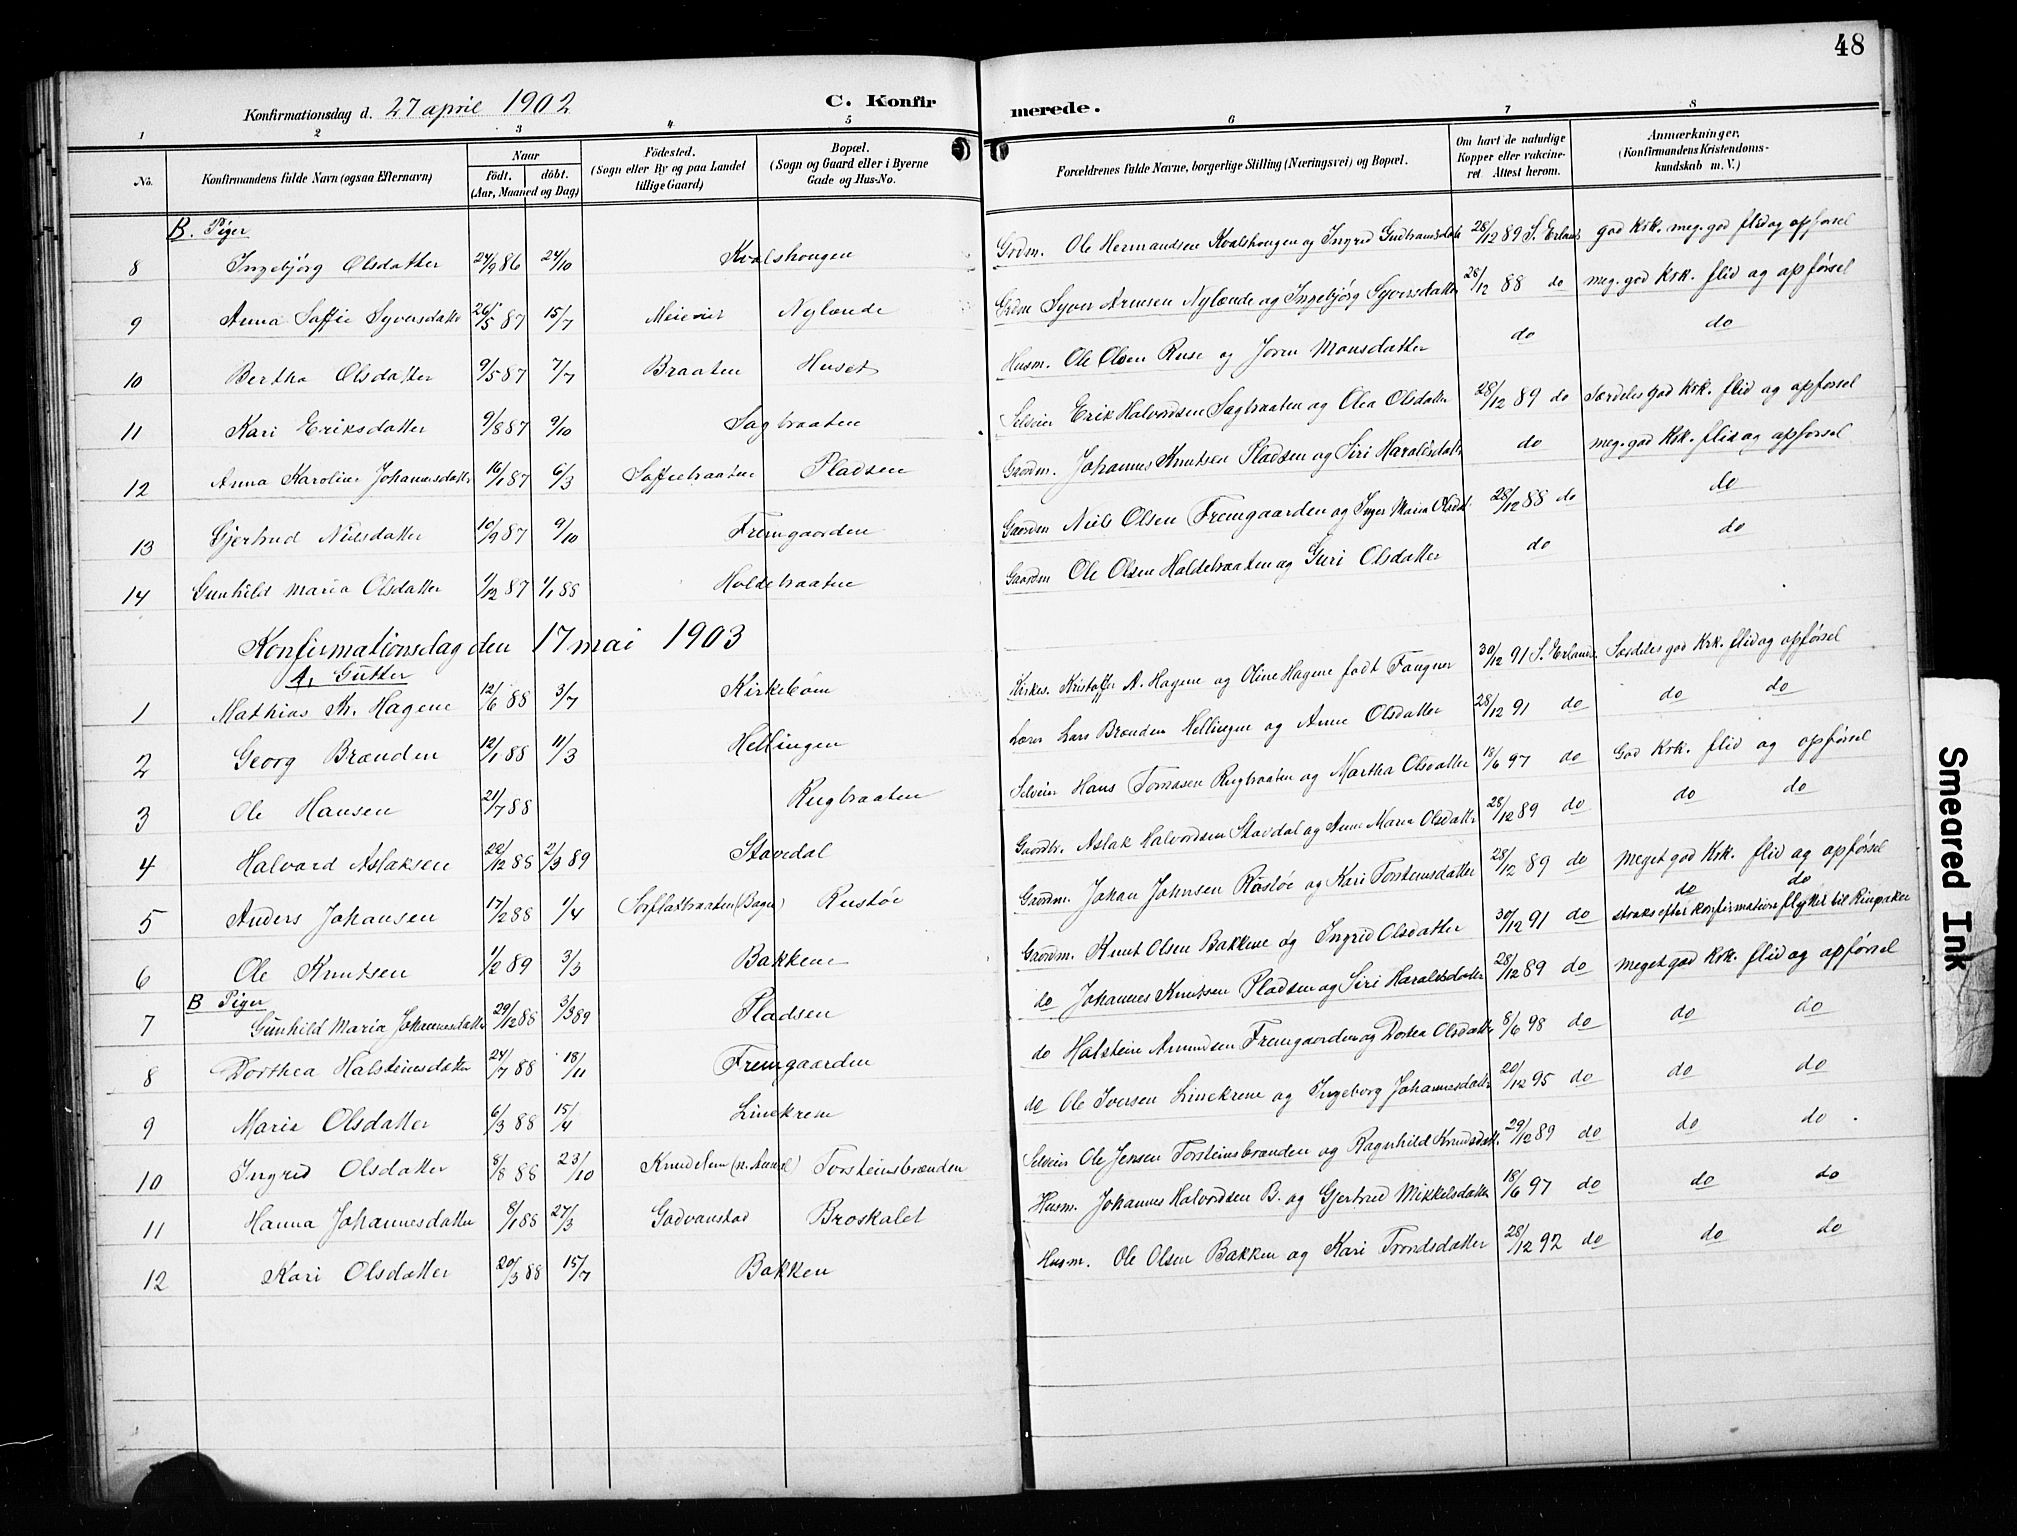 48
Konfirmationsdag d. 27 april 1902 C. Konfirmerede.
1 2 3 4 5 6 7 8
No. Konfirmandens fulde Navn (ogsaa Efternavn) Naar født. døbt. (Aar, Maaned og Dag) Fødested. (Sogn eller By og paa Landet tillige Gaard) Bopæl. (Sogn og Gaard eller i Byerne Gade og Hus-No. Forældrenes fulde Navne, borgerlige Stilling (Næringsvei) og Bopæl. Om havt de naturlige Kopper eller vakcineret. Attest herom. Anmærkninger, (Konfirmandens Kristendomskundskab m. V.)
B. Piger
8 Ingebjørg Olsdatter 24/9 86 24/10 Kvalshougen Grdm. Ole Hermandsen Kvalshougen og Ingrid 28/12 89 S. Erlands god Krk. meg. god flid og opførsel
9 Anna Saffie Syversdatter 26/5 87 15/7 Meieier Nylænde Grdm Syver Arnesen Nylænde og Ingebjørg Syversdatter 28/12 88 do meg. god Krk. flid og opførsel
10 Bertha Olsdatter 9/5 87 7/7 Braaten Huset Husm. Ole Olsen Ruse og Joren Monsdatter do do
11 Kari Eriksdatter 9/8 87 9/10 Sagbraaten Selveier Erik Halvordsen Sagbraaten og Olea Olsdatter 28/12 89 do Særdeles god Krk. flid og opførsel
12 Anna Karoline Johannesdatter 16/1 87 6/3 Saffiebraaten Pladsen Gaardm. Johannes Knutsen Pladsen og Siri Haraldsdatter do meg. god Krk. flid og opførsel
13 Gjertrud Nielsdatter 10/9 87 9/10 Fremgaarden Gaardm Niels Olsen Fremgaarden og Inger Maria Olsd. 28/12 88 do do
14 Gunhild Maria Olsdatter 1/12 87 1/1 88 Holdebraaten Gaardm Ole Olsen Holdebraaten og Guri Olsdatter do do
Konfirmationsdag den 17 mai 1903
A. Gutter
1 Mathias K. Hagene 12/6 88 3/7 Kirkebøm Kirkes. Kristoffer A. Hagene og Oline Hagene født Faugner 30/12 91 S. Erlands Særdeles god Krk. flid og opførsel
2 Georg Brænden 12/1 88 11/3 Hellingen Lærer Lars Brænden Hellingen og Anne Olsdatter 28/12 91 do do do
3 Ole Hansen 21/7 88 Rugbraaten Selveier Hans Tomasen Rugbraaten og Martha Olsdatter 18/6 97 do God Krk. flid og opførsel
4 Halvard Aslaksen 22/12 88 2/3 89 Stavedal Gaardbr. Aslak Halvordsen Stavdal og Anne Maria Olsdatter 28/12 89 do do do
5 Anders Johansen 17/2 88 1/4 Sørflatbraaten (Bagn) Rustøe Gaardm. Johan Johnsen Røstøe og Kari Torsteinsdatter 28/12 89 do Meget god Krk. flid og opførsel
6 Ole Knutsen 1/2 89 3/3 Bakkene Gaardm. Knut Olsen Bakkene og Ingrid Olsdatter 30/12 91 do do do straks efter konfirmationen flyttet til
B Piger
7 Gunhild Maria Johannesdatter 29/12 88 3/3 89 Pladsen do Johannes Knutsen Pladsen og Siri Haraldsdatter 28/12 89 do Meget god Krk. flid og opførsel
8 Dorthea Halsteinsdatter 24/7 88 18/11 Fremgaarden do Halstein Amundsen Fremgaarden og Dortea Olsdatter 8/6 98 do do do
9 Maria Olsdatter 6/3 88 15/4 Linekren do Ole Iversen Linekrene og Ingeborg Johannesdatter 20/12 95 do do do
10 Ingrid Olsdatter 8/8 88 23/10 Knudelien (N. Aurdal) Torsteinsbrænden Selveier Ole Jensen Torsteinsbrænden og Ragnhild Knudsdatt. 29/12 89 do do do
11 Hanna Johannesdatter 8/1 88 27/3 Gadvanstad Broskalet Husm. Johannes Halvordsen B. og Gjertrud Mikkelsdatter 18/6 97 do do do
12 Kari Olsdatter 20/3 88 15/7 Bakken Husm. Ole Olsen Bakken og Kari Trondsdatter 28/12 92 do do do
Smeared Ink